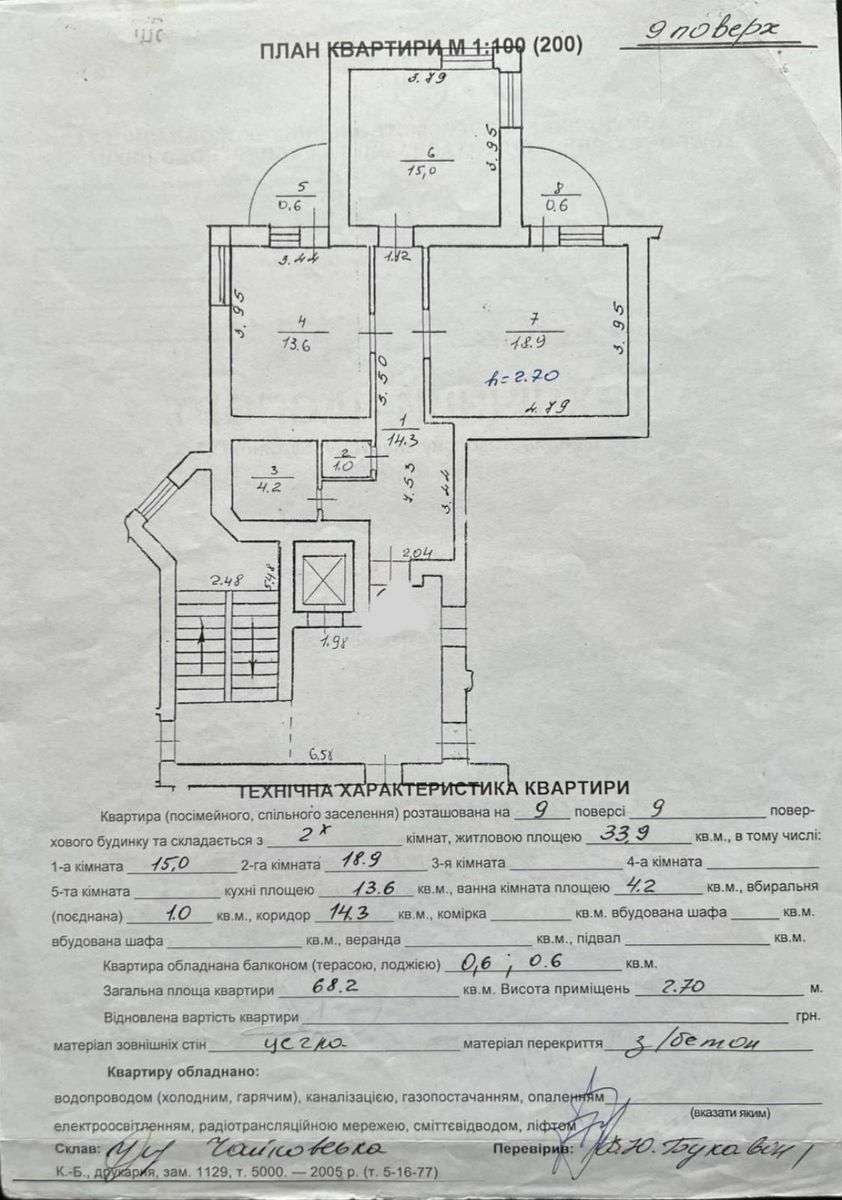 9 поверх
ПЛАН КВАРТИРИ М 1:100 (200)
3.79
6
15,0
3.95
5
0.6
8
0.6
3.44
1.12
3.95
4
13.6
7
18.9
3.95
h=2.70
5.50
4.79
1
14.3
2
1.0
3
4.2
7.53
3.44
2,04
2.48
5.48
1.98
6.58
ТЕХНІЧНА ХАРАКТЕРИСТИКА КВАРТИРИ
Квартира (посімейного, спільного заселення) розташована на 9 поверсі 9 повер-
хового будинку та складається з 2х кімнат, житловою площею 33,9 кв.м., в тому числі:
1-а кімната 15,0 2-га кімната 18.9 3-я кімната 4-а кімната
5-та кімната кухні площею 13.6 кв.м., ванна кімната площею 4.2 кв.м., вбиральня
(поєднана) 1.0 кв.м., коридор 14.3 кв.м., комірка кв.м. вбудована шафа кв.м.
вбудована шафа кв.м., веранда кв.м., підвал кв.м.
Квартира обладнана балконом (терасою, лоджією) 0,6 ; 0.6 кв.м.
Загальна площа квартири 68.2 кв.м. Висота приміщень 2.70 м.
Відновлена вартість квартири грн.
матеріал зовнішніх стін цегла матеріал перекриття з/бетон
Квартиру обладнано:
водопроводом (холодним, гарячим), каналізацією, газопостачанням, опаленням
(вказати яким)
електроосвітленням, радіотрансляційною мережею, сміттєвідводом, ліфтом
Склав: Чайковська Перевірив:
К.-Б., друкарня, зам. 1129, т. 5000. — 2005 р. (т. 5-16-77)